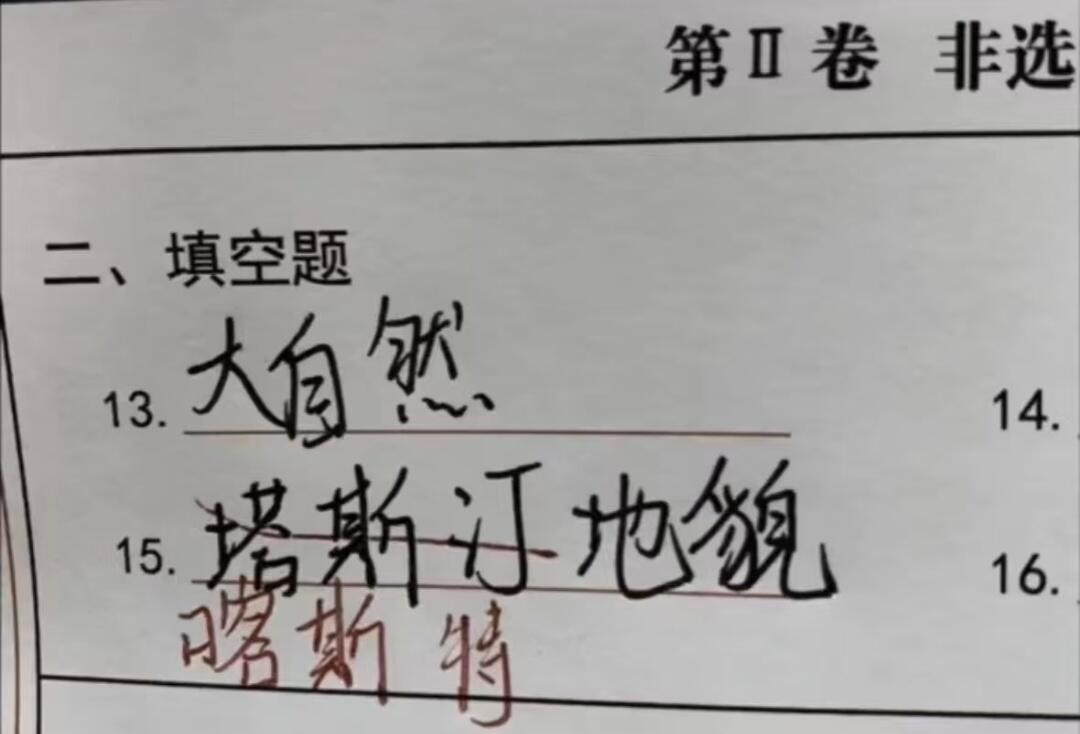 第Ⅱ卷 非选
二、填空题
13. 大自然
14.
15. 塔斯汀地貌
16.
喀斯特